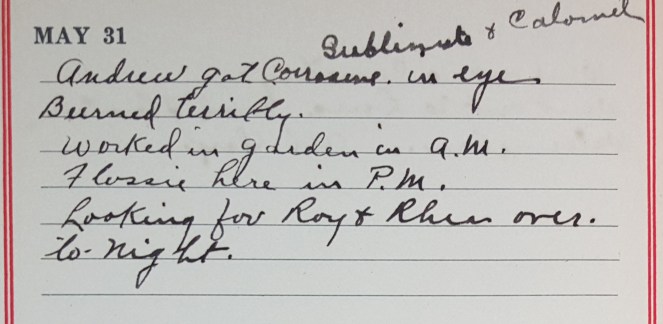 MAY 31
Sublimate & Calomel
Andrew got Corrosive in eye
Burned terribly.
Worked in garden in A.M.
Flossie here in P.M.
Looking for Roy & Rhea over.
to-night.